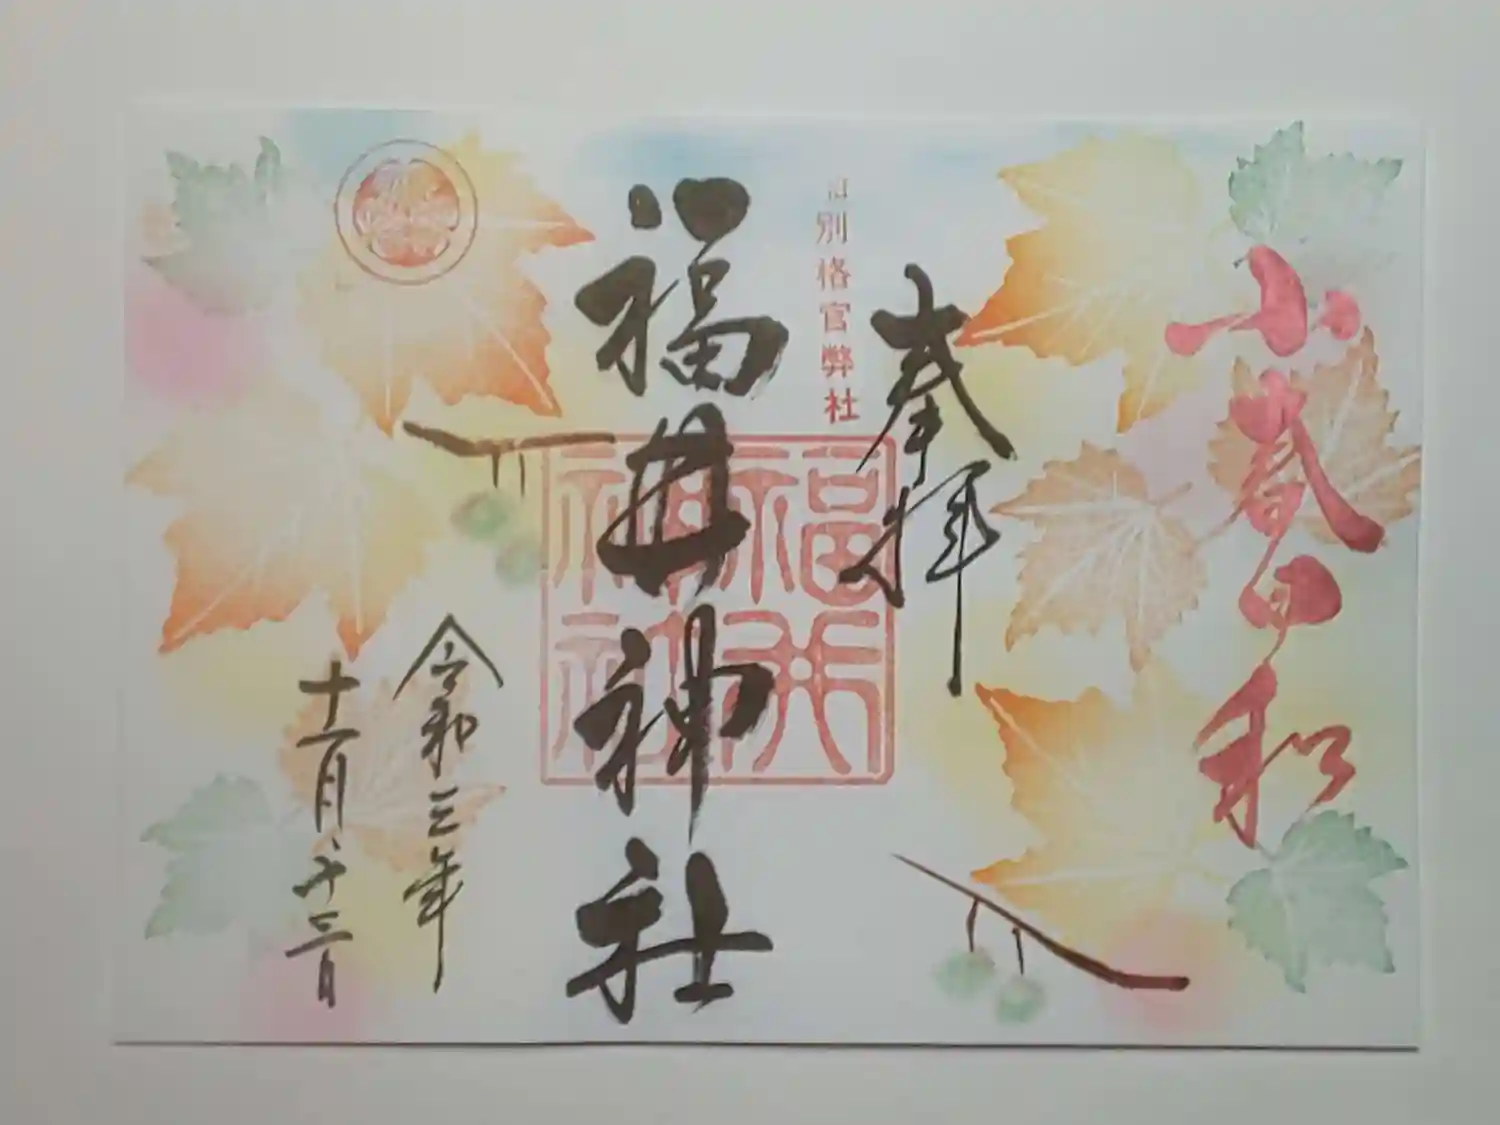 小春日和
奉拝
旧別格官幣社
福井神社
福井神社
令和三年
十一月二十三日